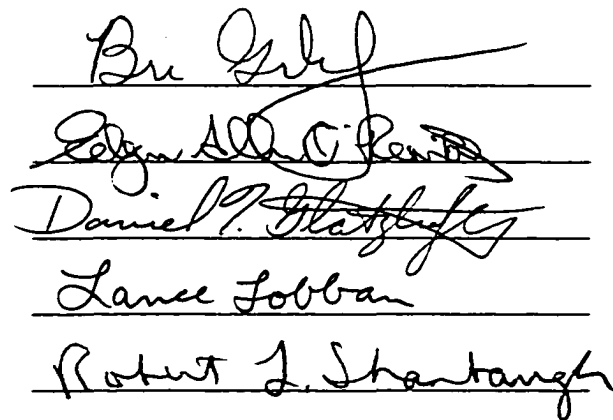 Edgar Allen O'Rear
Daniel T. Glatzhofer
Lance Lobban
Robert L. Shambaugh